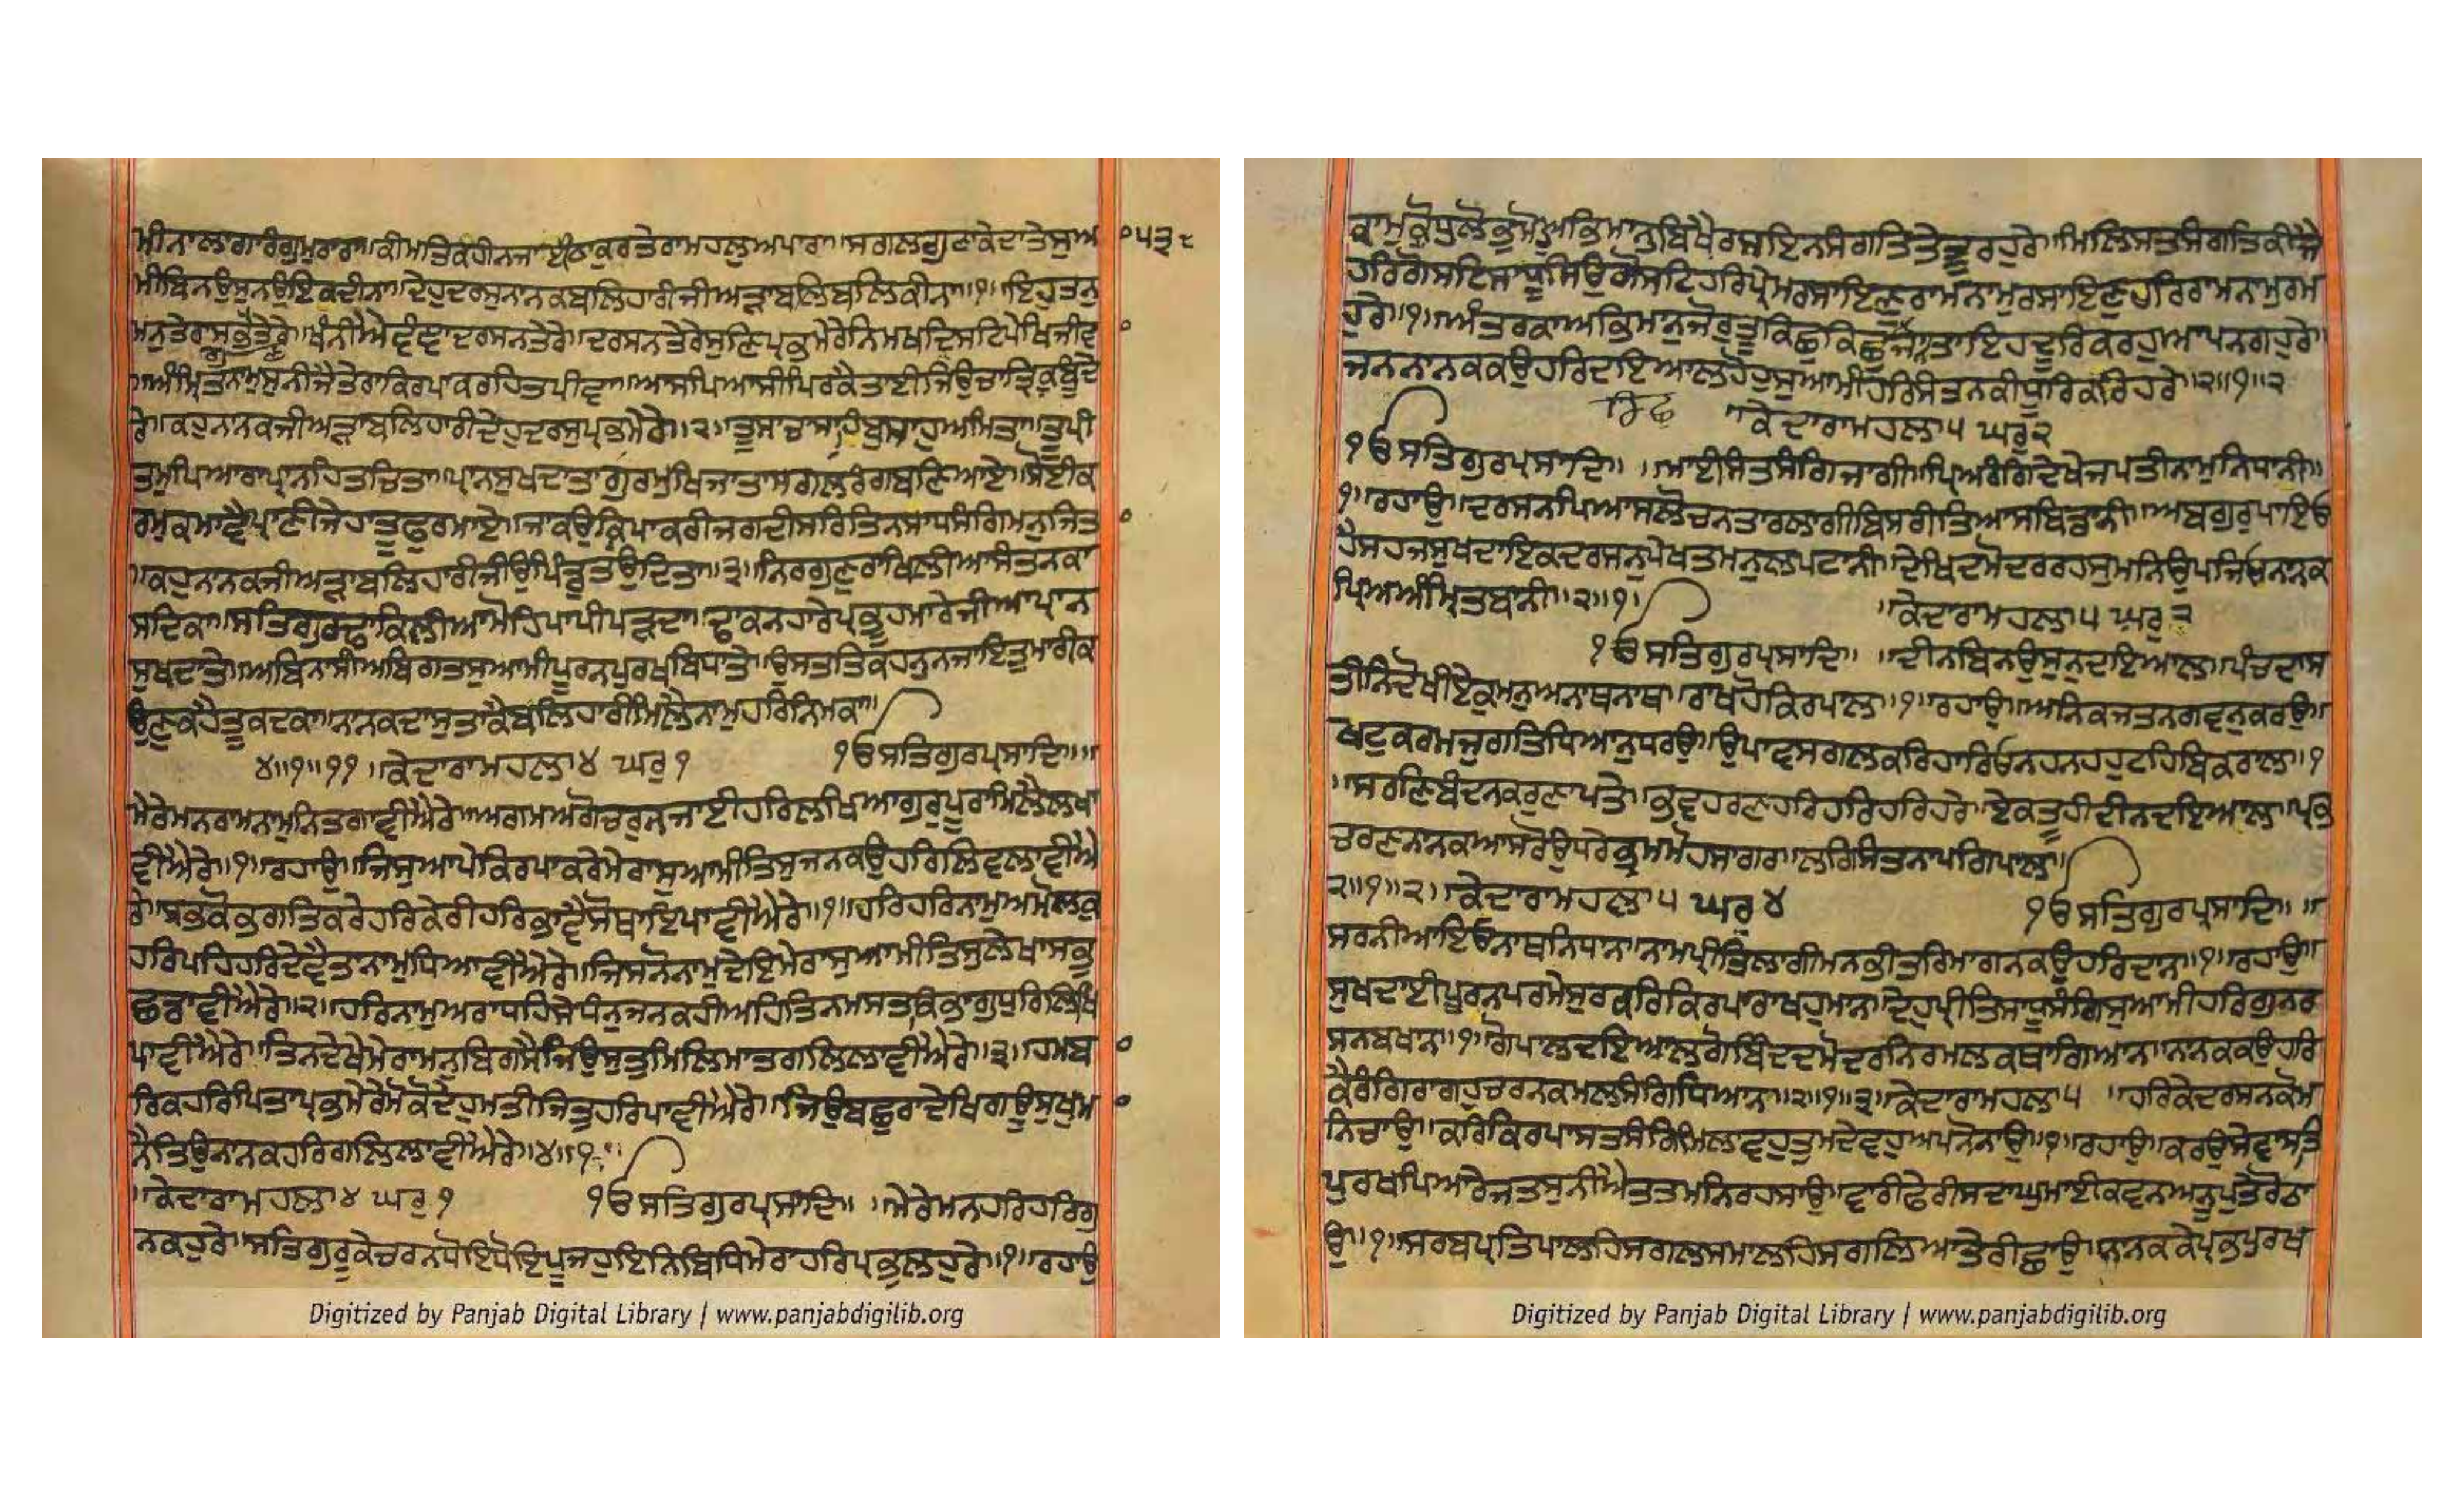 ਮੀਨਾਲਾਗਾਰੰਗੁਮੁਰਾਰਾ॥ਕੀਮਤਿਕਹੀਨਜਾਈਠਾਕੁਰਤੇਰਾਮਹਲੁਅਪਾਰਾ॥ਸਗਲਗੁਣਾਕੇਦਾਤੇਸੁਅ
੦੫੩੮
ਮੀਬਿਨਉਸੁਨਉਇਕਦੀਨਾ॥ਦੇਹੁਦਰਸੁਨਾਨਕਬਲਿਹਾਰੀਜੀਅੜਾਬਲਿਬਲਿਕੀਨਾ॥੧॥ਇਹੁਤਨੁ
ਮਨੁਤੇਰਾਸਭਤੇਰੇ॥ਖੰਨੀਐਵੰਞਾਦਰਸਨਤੇਰੇ॥ਦਰਸਨਤੇਰੇਸੁਣਿਪ੍ਰਭਮੇਰੇਨਿਮਖਦ੍ਰਿਸਟਿਪੇਖਿਜੀਵ
॥ਅੰਮ੍ਰਿਤਨਾਮੁਸੁਨੀਜੈਤੇਰਾਕਿਰਪਾਕਰਹਿਤਪੀਵਾ॥ਆਸਪਿਆਸੀਪਿਰਕੈਤਾਈਜਿਉਚਾਤ੍ਰਿਕਬੂੰਦੇ
ਰੇ॥ਕਹੁਨਾਨਕਜੀਅੜਾਬਲਿਹਾਰੀਦੇਹੁਦਰਸੁਪ੍ਰਭਮੇਰੇ॥੨॥ਤੂਸਾਚਾਸਾਹਿਬੁਸਾਹੁਅਮਿਤਾ॥ਤੂਪੀ
ਤਮੁਪਿਆਰਾਪ੍ਰਾਨਹਿਤਚਿਤਾ॥ਪ੍ਰਾਨਸੁਖਦਾਤਾਗੁਰਮੁਖਿਜਾਤਾਸਗਲਰੰਗਬਣਿਆਏ॥ਸੋਈਕ
ਰਮੁਕਮਾਵੈਪ੍ਰਾਣੀਜੇਹਾਤੂਫੁਰਮਾਏ॥ਜਾਕਉਕ੍ਰਿਪਾਕਰੀਜਗਦੀਸਰਿਤਿਨਸਾਧਸੰਗਿਮਨੁਜਿਤ
॥ਕਹੁਨਾਨਕਜੀਅੜਾਬਲਿਹਾਰੀਜੀਉਪਿੰਡੁਤਉਦਿਤਾ॥੩॥ਨਿਰਗੁਣੁਰਾਖਿਲੀਆਸੰਤਨਕਾ
ਸਦਿਕਾ॥ਸਤਿਗੁਰਢਾਕਿਲੀਆਮੋਹਿਪਾਪੀਪੜਦਾ॥ਢਾਕਨਹਾਰੇਪ੍ਰਭੂਹਮਾਰੇਜੀਅਪ੍ਰਾਨ
ਸੁਖਦਾਤੇ॥ਅਬਿਨਾਸੀਅਬਿਗਤਸੁਆਮੀਪੂਰਨਪੁਰਖਬਿਧਾਤੇ॥ਉਸਤਤਿਕਹਨੁਨਜਾਇਤੁਮਾਰੀਕ
ਉਣੁਕਹੈਤੂਕਦਕਾ॥ਨਾਨਕਦਾਸੁਤਾਕੈਬਲਿਹਾਰੀਮਿਲੈਨਾਮੁਹਰਿਨਿਮਕਾ॥
੪॥੧॥੧੧॥ਕੇਦਾਰਾਮਹਲਾ੪ ਘਰੁ੧ ੴਸਤਿਗੁਰਪ੍ਰਸਾਦਿ॥॥
ਮੇਰੇਮਨਰਾਮਨਾਮੁਨਿਤਗਾਵੀਐਰੇ॥ਅਗਮਅਗੋਚਰੁਨਜਾਈਹਰਿਲਖਿਆਗੁਰੁਪੂਰਾਮਿਲੈਲਖਾ
ਵੀਐਰੇ॥੧॥ਰਹਾਉ॥ਜਿਸੁਆਪੇਕਿਰਪਾਕਰੇਮੇਰਾਸੁਆਮੀਤਿਸੁਜਨਕਉਹਰਿਲਿਵਲਾਵੀਐ
ਰੇ॥ਸਭੁਕੋਭਗਤਿਕਰੇਹਰਿਕੇਰੀਹਰਿਭਾਵੈਸੋਥਾਇਪਾਵੀਐਰੇ॥੧॥ਹਰਿਹਰਿਨਾਮੁਅਮੋਲਕੁ
ਹਰਿਪਹਿਹਰਿਦੇਵੈਤਾਨਾਮੁਧਿਆਵੀਐਰੇ॥ਜਿਸਨੋਨਾਮੁਦੇਇਮੇਰਾਸੁਆਮੀਤਿਸੁਲੇਖਾਸਭੁ
ਛਡਾਵੀਐਰੇ॥੨॥ਹਰਿਨਾਮੁਅਰਾਧਹਿਸੇਧੰਨੁਜਨਕਹੀਅਹਿਤਿਨਮਸਤਕਿਭਾਗੁਧੁਰਿਲਿਖਿ
ਪਾਵੀਐਰੇ॥ਤਿਨਦੇਖੇਮੇਰਾਮਨੁਬਿਗਸੈਜਿਉਸੁਤੁਮਿਲਿਮਾਤਗਲਿਲਾਵੀਐਰੇ॥੩॥ਹਮਬਾ
ਰਿਕਹਰਿਪਿਤਾਪ੍ਰਭਮੇਰੇਮੋਕੋਦੇਹੁਮਤੀਜਿਤੁਹਰਿਪਾਵੀਐਰੇ॥ਜਿਉਬਛੁਰਾਦੇਖਿਗਊਸੁਖੁਮ
ਨੈਤਿਉਨਾਨਕਹਰਿਗਲਿਲਾਵੀਐਰੇ॥੪॥੧॥
॥ਕੇਦਾਰਾਮਹਲਾ੪ ਘਰੁ ੧ ੴਸਤਿਗੁਰਪ੍ਰਸਾਦਿ॥ ॥ਮੇਰੇਮਨਹਰਿਹਰਿਗੁ
ਨਕਹੁਰੇ॥ਸਤਿਗੁਰੂਕੇਚਰਨਧੋਇਧੋਇਪੂਜਹੁਇਨਿਬਿਧਿਮੇਰਾਹਰਿਪ੍ਰਭੁਲਹੁਰੇ॥੧॥ਰਹਾਉ
Digitized by Panjab Digital Library | www.panjabdigilib.org
ਕਾਮੁਕ੍ਰੋਧੁਲੋਭੁਮੋਹੁਅਭਿਮਾਨੁਬਿਖੈਰਸਇਨਸੰਗਤਿਤੇਤੂਰਹੁਰੇ॥ਮਿਲਿਸਤਸੰਗਤਿਕੀਜੈ
ਹਰਿਗੋਸਟਿਸਾਧੂਸਿਉਗੋਸਟਿਹਰਿਪ੍ਰੇਮਰਸਾਇਣੁਰਾਮਨਾਮੁਰਸਾਇਣੁਹਰਿਰਾਮਨਾਮੁਰਮ
ਹੁਰੇ॥੧॥ਅੰਤਰਕਾਅਭਿਮਾਨੁਜੋਰੁਤੂਕਿਛੁਕਿਛੁਕਿਛੁਜਾਨਤਾਇਹੁਦੂਰਿਕਰਹੁਆਪਨਗਹੁਰੇ॥
ਜਨਨਾਨਕਕਉਹਰਿਦਇਆਲਹੋਹੁਸੁਆਮੀਹਰਿਸੰਤਨਕੀਧੂਰਿਕਰਿਹਰੇ॥੨॥੧॥੨
॥ਕੇਦਾਰਾਮਹਲਾ੫ ਘਰੁ੨
ੴਸਤਿਗੁਰਪ੍ਰਸਾਦਿ॥ ॥ਮਾਈਸੰਤਸੰਗਿਜਾਗੀ॥ਪ੍ਰਿਅਰੰਗਿਦੇਖੇਜਪਤੀਨਾਮੁਨਿਧਾਨੀ॥
੧॥ਰਹਾਉ॥ਦਰਸਨਪਿਆਸਲੋਚਨਤਾਰਲਾਗੀਬਿਸਰੀਤਿਆਸਬਿਡਾਨੀ॥ਅਬਗੁਰੁਪਾਇਓ
ਹੈਸਹਜਸੁਖਦਾਇਕਦਰਸਨੁਪੇਖਤਮਨੁਲਪਟਾਨੀ॥ਦੇਖਿਦਮੋਦਰਰਹਸੁਮਨਿਉਪਜਿਓਨਾਨਕ
ਪ੍ਰਿਅਅੰਮ੍ਰਿਤਬਾਨੀ॥੨॥੧॥ ॥ਕੇਦਾਰਾਮਹਲਾ੫ ਘਰੁ ੩
ੴਸਤਿਗੁਰਪ੍ਰਸਾਦਿ॥ ॥ਦੀਨਬਿਨਉਸੁਨੁਦਇਆਲਾ॥ਪੰਚਦਾਸ
ਤੀਨਿਦੋਖੀਏਕਮਨੁਅਨਾਥਨਾਥ॥ਰਾਖਹੋਕਿਰਪਾਲਾ॥੧॥ਰਹਾਉ॥ਅਨਿਕਜਤਨਗਵਨੁਕਰਉ॥
ਖਟੁਕਰਮਜੁਗਤਿਧਿਆਨੁਧਰਉ॥ਉਪਾਵਸਗਲਕਰਿਹਾਰਿਓਨਹਨਹਹੁਟਹਿਬਿਕਰਾਲਾ॥੧
॥ਸਰਣਿਬੰਦਨਕਰੁਣਾਪਤੇ॥ਭਵਹਰਣਹਰਿਹਰਿਹਰਿਹਰੇ॥ਏਕਤੂਹੀਦੀਨਦਇਆਲਾ॥ਪ੍ਰਭ
ਚਰਣਨਾਨਕਆਸਰੋਉਧਰੇਭ੍ਰਮਮੋਹਸਾਗਰਾ॥ਲਗਿਸੰਤਨਾਪਗਿਪਾਲਾ॥
੨॥੧॥੨॥ਕੇਦਾਰਾਮਹਲਾ੫ ਘਰੁ ੪ ੴਸਤਿਗੁਰਪ੍ਰਸਾਦਿ॥ ॥
ਸਰਨੀਆਇਓਨਾਥਨਿਧਾਨਾ॥ਨਾਮਪ੍ਰੀਤਿਲਾਗੀਮਨਭੀਤਰਿਮਾਗਨਕਉਹਰਿਦਾਨਾ॥੧॥ਰਹਾਉ॥
ਸੁਖਦਾਈਪੂਰਨਪਰਮੇਸੁਰਕਰਿਕਿਰਪਾਰਾਖਹੁਮਾਨਾ॥ਦੇਹੁਪ੍ਰੀਤਿਸਾਧੂਸੰਗਿਸੁਆਮੀਹਰਿਗੁਨਰ
ਸਨਬਖਾਨਾ॥੧॥ਗੋਪਾਲਦਇਆਲਗੋਬਿੰਦਦਮੋਦਰਨਿਰਮਲਕਥਾਗਿਆਨਾ॥ਨਾਨਕਕਉਹਰਿ
ਕੈਰੰਗਿਰਾਗਹੁਚਰਨਕਮਲਸੰਗਿਧਿਆਨਾ॥੨॥੧॥੩॥ਕੇਦਾਰਾਮਹਲਾ੫ ॥ਹਰਿਕੇਦਰਸਨਕੋਮ
ਨਿਚਾਉ॥ਕਰਿਕਿਰਪਾਸਤਸੰਗਿਮਿਲਾਵਹੁਤੁਮਦੇਵਹੁਅਪਨੋਨਾਉ॥੧॥ਰਹਾਉ॥ਕਰਉਸੇਵਾਸਤਿ
ਪੁਰਖਪਿਆਰੇਜਤਸੁਨੀਐਤਤਮਨਿਰਹਸਾਉ॥ਵਾਰੀਫੇਰੀਸਦਾਘੁਮਾਈਕਵਨੁਅਨੂਪੁਤੇਰੋਠਾ
ਉ॥੧॥ਸਰਬਪ੍ਰਤਿਪਾਲਹਿਸਗਲਸਮਾਲਹਿਸਗਲਿਆਤੇਰੀਛਾਉ॥ਨਾਨਕਕੇਪ੍ਰਭਪੁਰਖ
Digitized by Panjab Digital Library | www.panjabdigilib.org